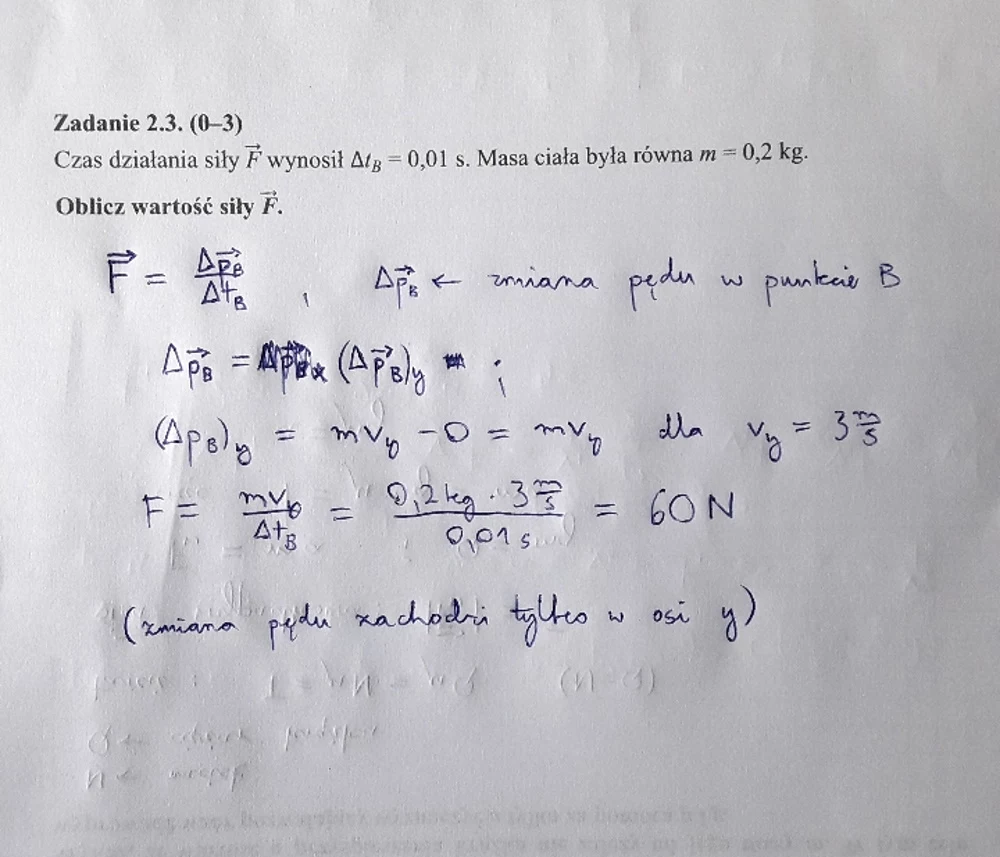 Zadanie 2.3. (0–3)
Czas działania siły F⃗ wynosił Δt_B = 0,01 s. Masa ciała była równa m = 0,2 kg.
Oblicz wartość siły F⃗.
F⃗ = Δp⃗_B / Δt_B , Δp⃗_B ← zmiana pędu w punkcie B
Δp⃗_B = (Δp⃗_B)_y ;
(Δp_B)_y = mv_y − 0 = mv_y dla v_y = 3 m/s
F = mv_y / Δt_B = 0,2 kg · 3 m/s / 0,01 s = 60 N
(zmiana pędu zachodzi tylko w osi y)